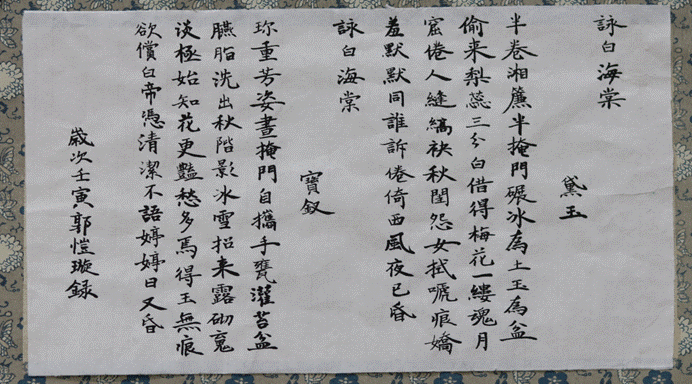 詠白海棠
黛玉
半卷湘簾半掩門碾冰為土玉為盆
偷来梨蕊三分白借得梅花一縷魂月
窟僊人縫縞袂秋閨怨女拭嗁痕嬌
羞默默同誰訴倦倚西風夜已昏
詠白海棠
寶釵
珎重芳姿晝掩門自攜手甕灌苔盆
臙脂洗出秋階影冰雪招来露砌䰟
淡極始知花更豔愁多焉得玉無痕
欲償白帝憑清潔不語婷婷日又昏
歲次壬寅郭愷璇録